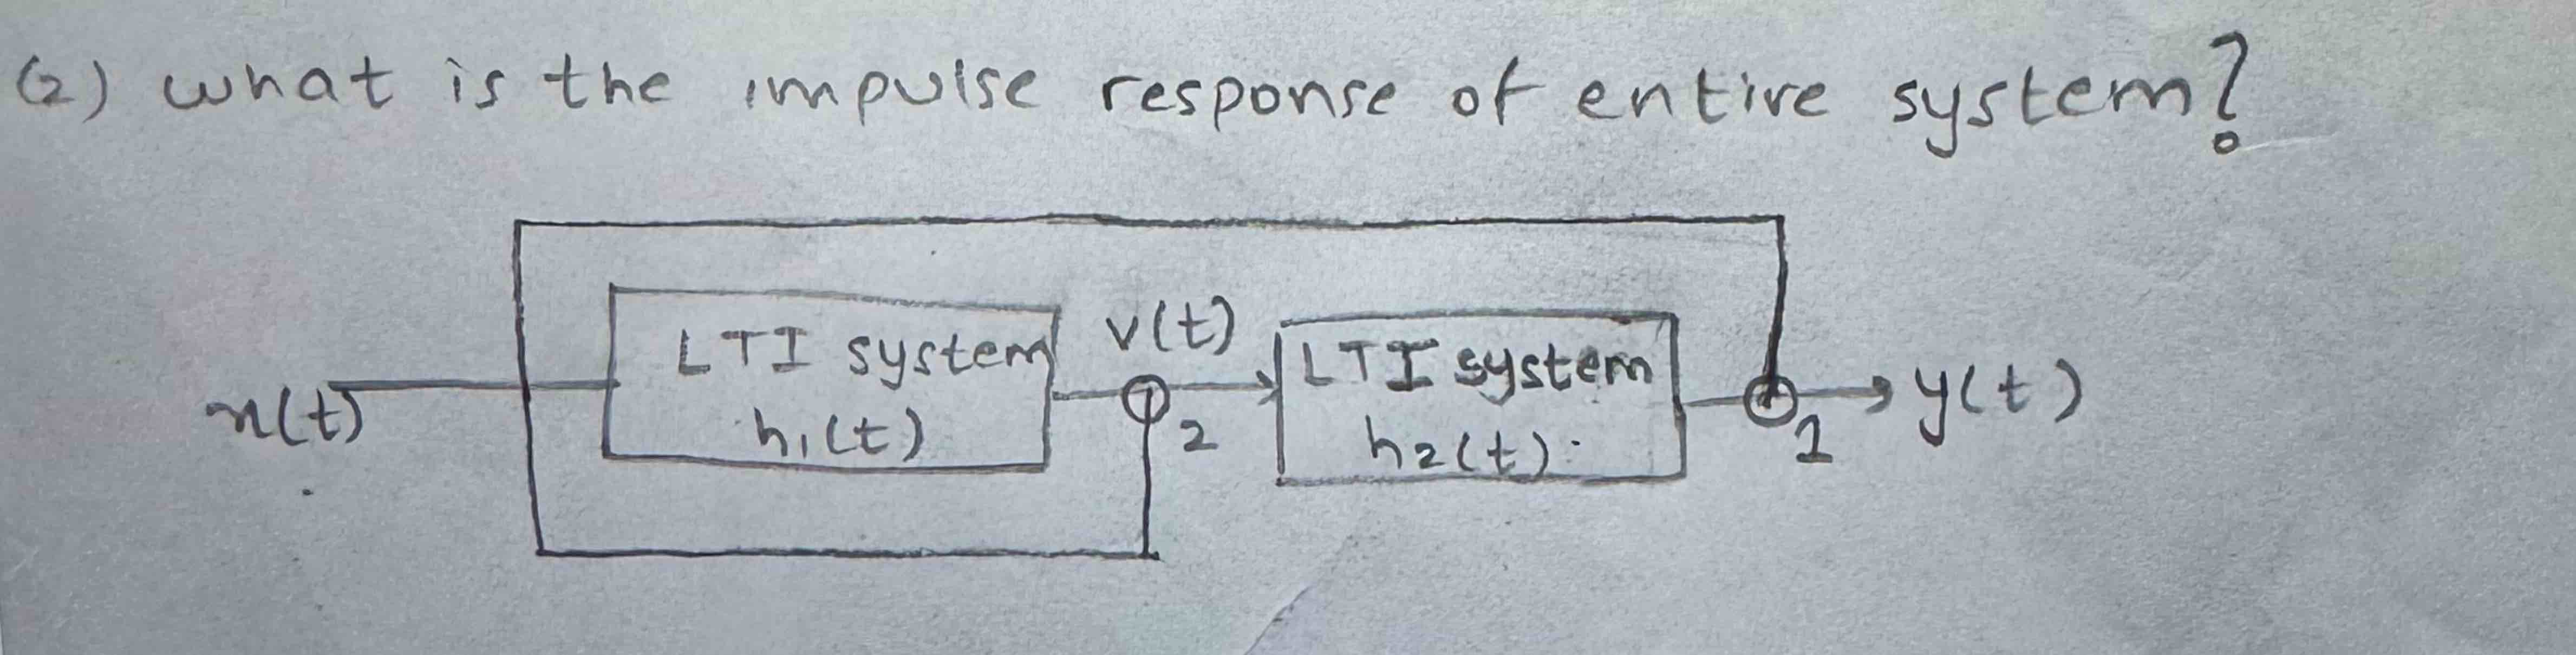 (2) what is the impulse response of entire system?
LTI system
h₁(t)
v(t)
LTI system
h₂(t)
x(t)
2
1
y(t)